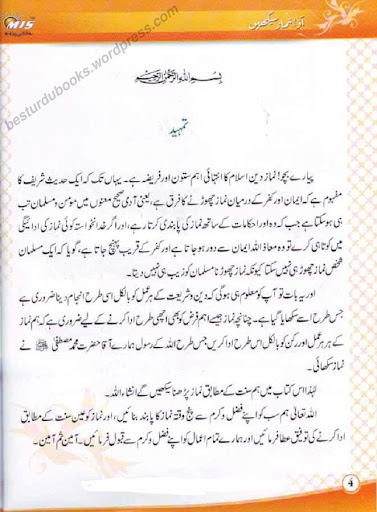 MIS
آؤ! نماز سیکھیں
besturdubooks.wordpress.com
بسم اللہ الرحمٰن الرحیم
تمہید
پیارے بچو! نماز دین اسلام کا انتہائی اہم ستون اور فریضہ ہے۔ یہاں تک کہ ایک حدیث شریف کا
مفہوم ہے کہ ایمان اور کفر کے درمیان نماز چھوڑنے کا فرق ہے، یعنی آدمی صحیح معنوں میں مؤمن و مسلمان تب
ہی ہوسکتا ہے جب کہ وہ اور احکامات کے ساتھ نماز کی پابندی کرتا رہے، اور اگر خدانخواستہ کوئی نماز کی ادائیگی
میں کوتاہی کرے تو وہ معاذ اللہ ایمان سے دور ہو جاتا ہے اور کفر کے قریب پہنچ جاتا ہے، گویا کہ ایک مسلمان
شخص نماز چھوڑ ہی نہیں سکتا کیونکہ نماز چھوڑنا مسلمان کو زیب ہی نہیں دیتا۔
اور یہ بات تو آپ کو معلوم ہی ہوگی کہ دین و شریعت کے ہر عمل کو بالکل اسی طرح انجام دینا ضروری ہے
جس طرح اسے سکھایا گیا ہے۔ چنانچہ نماز جیسے اہم فرض کو بھی اچھی طرح ادا کرنے کے لیے ضروری ہے کہ ہم نماز
کے ہر ہر عمل اور رکن کو بالکل اس طرح ادا کریں جس طرح اللہ کے رسول ہمارے آقا حضرت محمد مصطفیٰ ﷺ نے
نماز سکھائی۔
لہٰذا اس کتاب میں ہم سنت کے مطابق نماز پڑھنا سیکھیں گے انشاء اللہ۔
اللہ تعالیٰ ہم سب کو اپنے فضل و کرم سے پنج وقتہ نماز کا پابند بنائیں، اور نماز کو عین سنت کے مطابق
ادا کرنے کی توفیق عطا فرمائیں اور ہمارے تمام اعمال کو اپنے فضل و کرم سے قبول فرمائیں۔ آمین ثم آمین۔
4